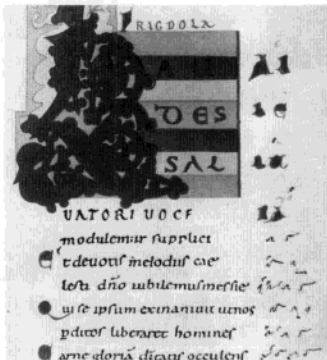 FRIGDOLA
AU
DES
SAL
UATORI UOCE
modulemur supplici
Et deuotis melodiis cae
lesti dño iubilemus messie
Qui se ipsum exinaniuit ut nos
pditos liberaret homines
Carne gloriã occulens